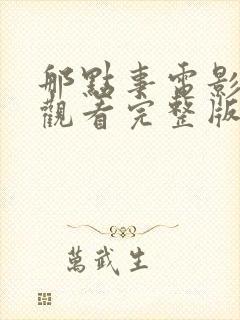 那點事電影
觀看完整版
萬武生